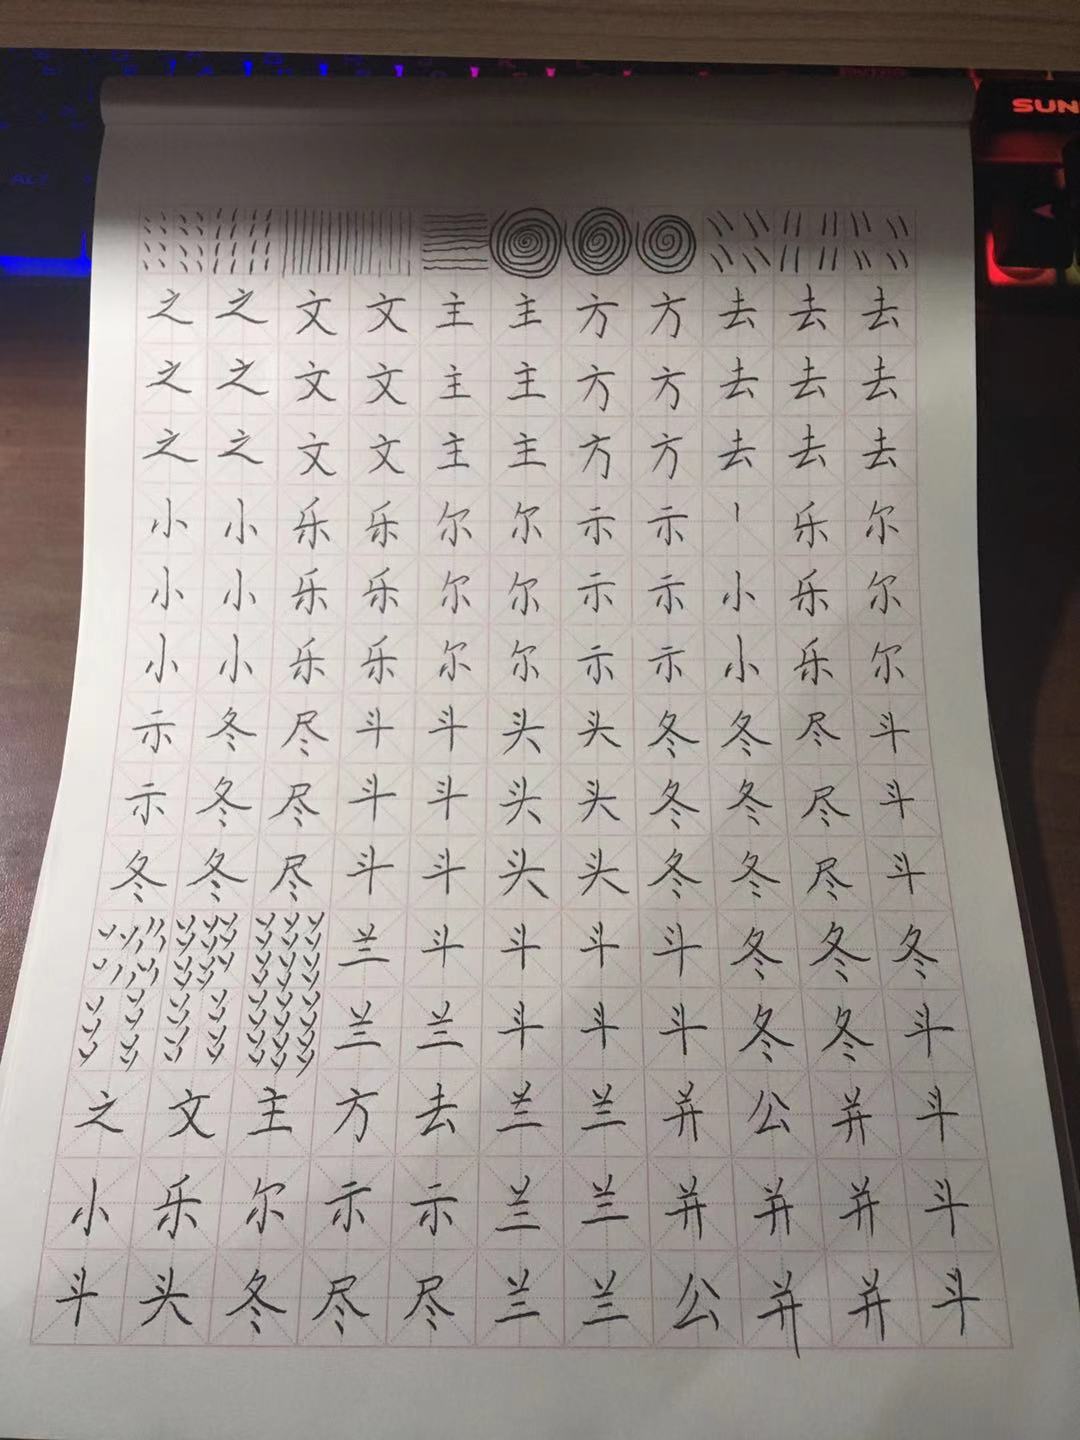 SUN
ALT
之之文文主主方方去去去
之之文文主主方方去去去
之之文文主主方方去去去
小小乐乐尔尔示示丨乐尔
小小乐乐尔尔示示小乐尔
小小乐乐尔尔示示小乐尔
示冬尽斗斗头头冬冬尽斗
示冬尽斗斗头头冬冬尽斗
冬冬尽斗斗头头冬冬尽斗
兰斗斗斗斗冬冬冬
兰兰斗斗斗冬冬斗
之文主方去兰兰并公并斗
小乐尔示示兰兰并并并斗
斗头冬尽尽兰兰公并并斗